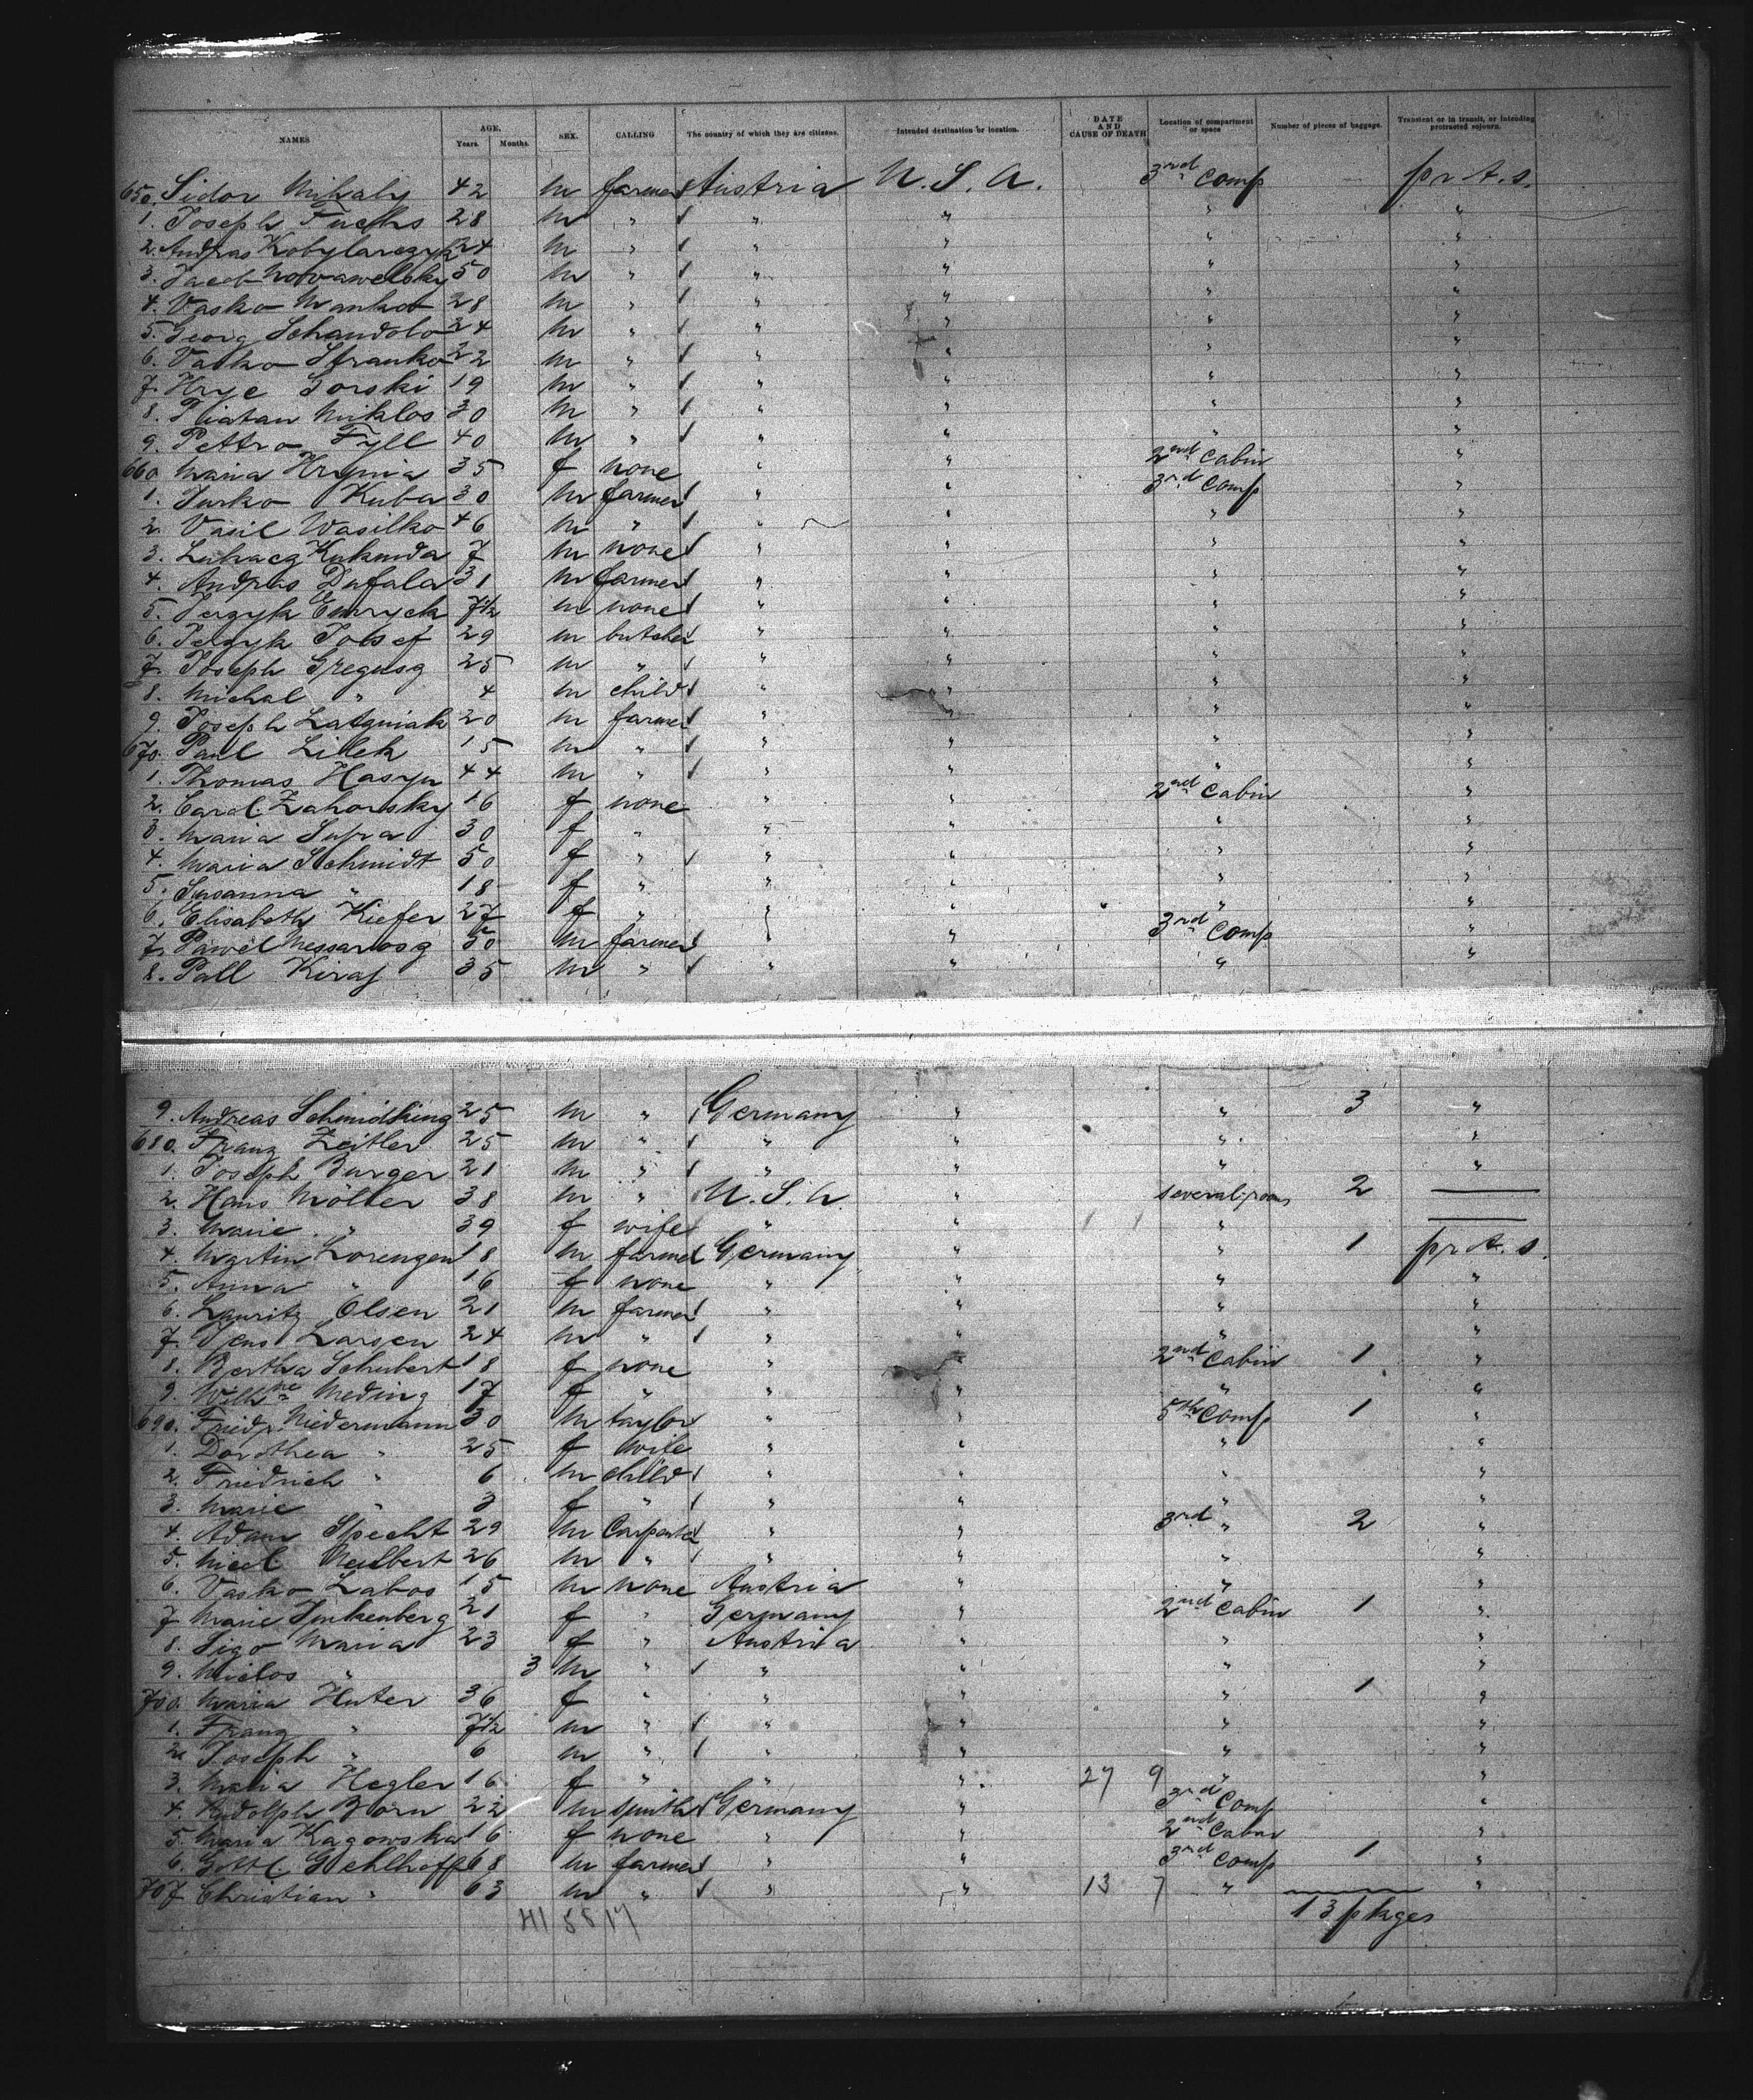 NAMES AGE. Years. Months. SEX. CALLING The country of which they are citizens. Intended destination or location. DATE AND CAUSE OF DEATH Location of compartment or space Number of pieces of baggage. Transient or in transit, or intending protracted sojourn.
650. Sidor Mihaly 42 m farmer Austria U. S. A. 3rd Comp pr t. s.
1. Joseph Fuchs 28 m " " " " "
2. Andras Kobylarczyk 24 m " " " " "
3. Jacob 50 m " " " " "
4. Vasko Manko 28 m " " " " "
5. Georg Schandolo 24 m " " " " "
6. Vasko Stranko 22 m " " " " "
7. Hryc Gorski 19 m " " " " "
8. Miklos 30 m " " " " "
9. Pettro Fyll 40 m " " " " "
660 Maria Hrynia 35 f none " " 2nd Cabin "
1. Jurko Kuba 30 m farmer " " 3rd Comp "
2. Vasil Wasilko 46 m " " " " "
3. Lukacz Kukunda 7 m none " " " "
4. Andras Dufala 31 m farmer " " " "
5. Perzyk Emryck 7½ m none " " " "
6. Perzyk Josef 29 m butcher " " " "
7. Joseph Gregusz 25 m " " " " "
8. Michal " 4 m child " " " "
9. Joseph Latzniak 20 m farmer " " " "
670. Paul Lilek 15 m " " " " "
1. Thomas Hasyn 44 m " " " " "
2. Carol. Zahorsky 16 f none " " 2nd Cabin "
3. Maria Supra 30 f " " " " "
4. Maria Schmidt 50 f " " " " "
5. Susanna " 18 f " " " " "
6. Elisabeth Kiefer 27 f " " " " "
7. Pawel Messarosz 50 m farmer " " 3rd Comp "
8. Pall Kiraj 35 m " " " " "
9. Andreas Schmidking 25 m " Germany " " 3 "
680. Franz Zeitler 25 m " " " " "
1. Joseph Burger 21 m " " " " "
2. Hans Möller 38 m " U. S. A. " several rooms 2
3. Marie " 39 f wife " " "
4. Martin Lorenzen 18 m farmer Germany " " 1 pr t. s.
5. Anna " 16 f none " " " "
6. Lauritz Olsen 21 m farmer " " " "
7. Jens Larsen 24 m " " " " "
8. Bertha Schubert 18 f none " " 2nd Cabin 1 "
9. Wilhne Meding 17 f " " " " "
690. Friedr. Niedermann 30 m taylor " " 5th Comp 1 "
1. Dorothea " 25 f wife " " " "
2. Friedrich " 6 m child " " " "
3. Marie " 3 f " " " " "
4. Adam Specht 29 m Carpenter " " 3rd " 2 "
5. Nicol Neilbert 26 m " " " " "
6. Vasko Labos 15 m none Austria " " "
7 Marie Funkenberg 21 f " Germany " 2nd Cabin 1 "
8. Sigo Maria 23 f " Austria " " "
9. Miclos " 3 m " " " " "
700. Maria Huter 36 f " " " " 1 "
1. Franz " 7½ m " " " " "
2. Joseph " 6 m " " " " "
3. Maria Hegler 16 f " " " 27 9 " "
4. Rudolph Born 22 m smith Germany " 3rd Comp "
5. Maria Kagowska 16 f none " " 2nd Cabin "
6. Gottl. Gehlhoff 68 m farmer " " 3rd Comp 1 "
707 Christian " 63 m " " " 13 7 " "
13 pkges